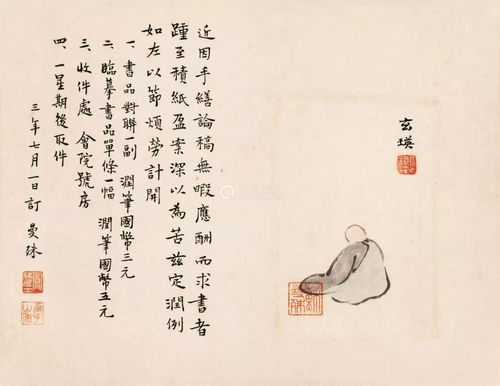 近因手繕論稿無暇應酬而求書者
踵至積紙盈案深以為苦茲定潤例
如左以節煩勞計開
一、書品對聯一副 潤筆國幣三元
二、臨摹書品單條一幅 潤筆國幣五元
三、收件處 會院號房
四、一星期後取件
三年七月一日訂 曼殊
玄瑛